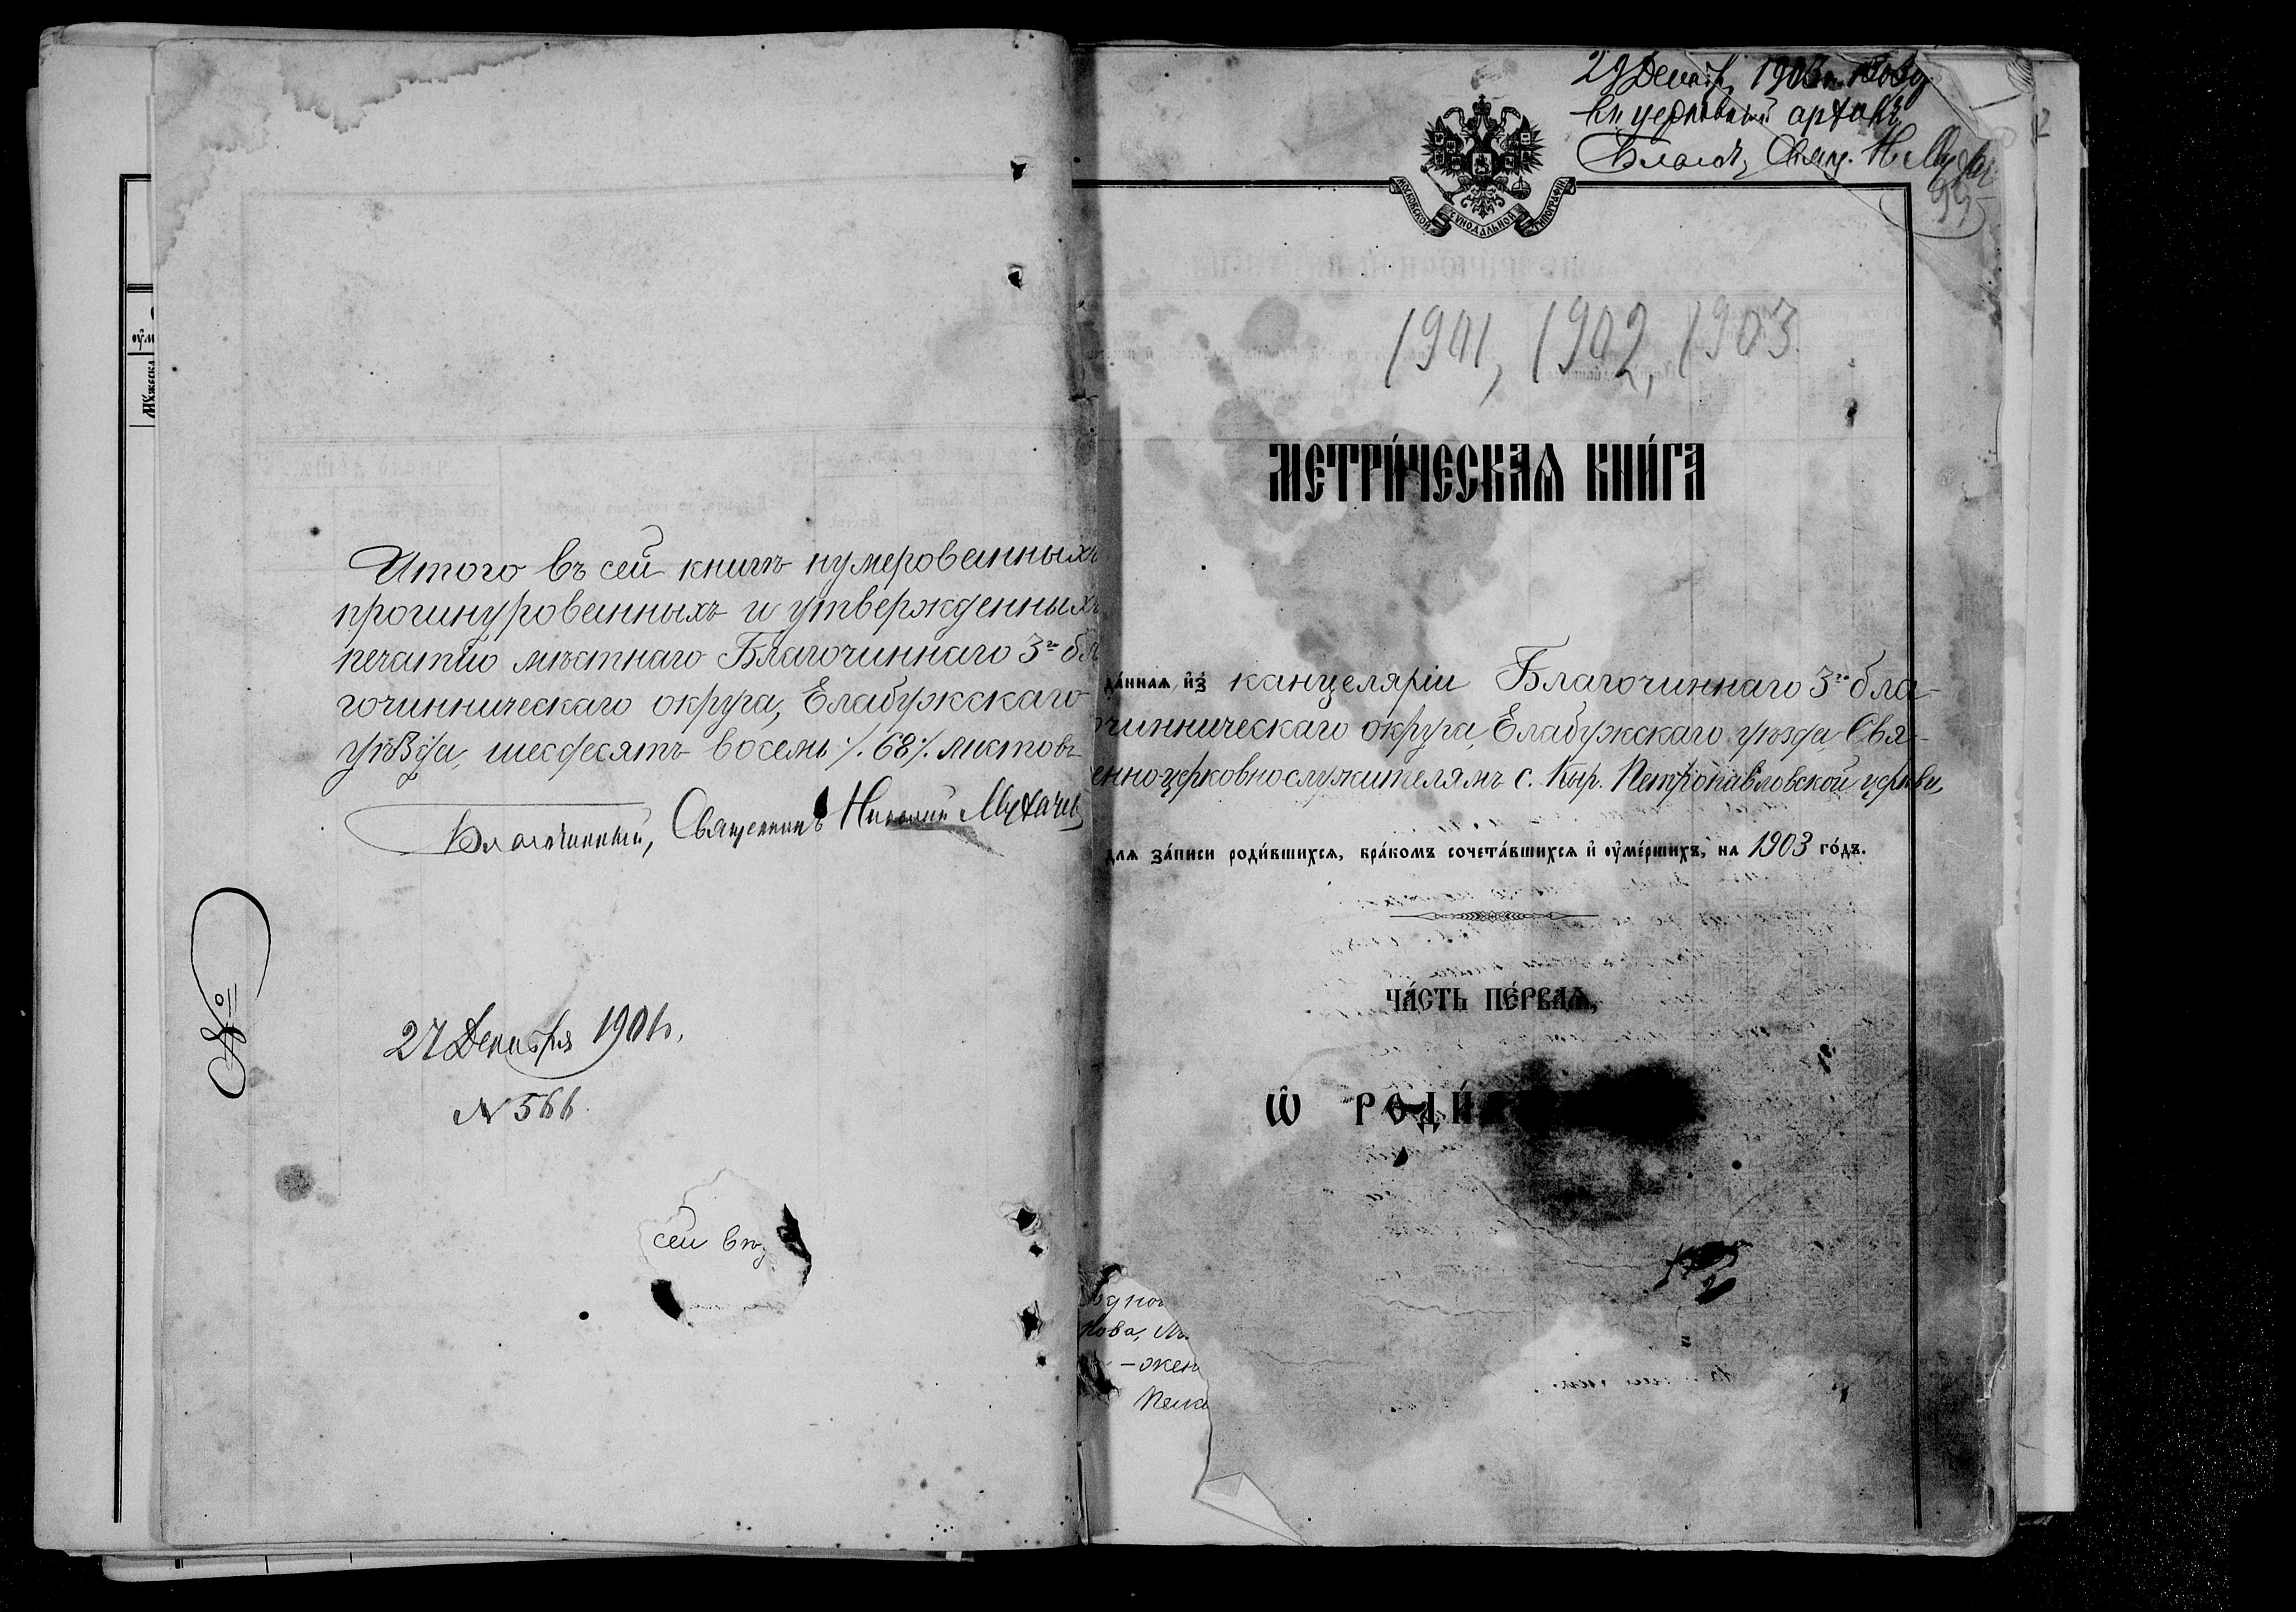 Итого въ сей книгѣ нумерованныхъ
прошнурованныхъ и утвержденныхъ
печатью мѣстнаго Благочиннаго 3го бла
гочинническаго округа, Елабужскаго
уѣзда, шесдесятъ восемь ·/. 68 ·/. листовъ
Благочинный, Священникъ Николай Мухачев
№
27 Декабря 1901 г.
№ 566.
сей въ
29 Декабр 1903
въ церковный архивъ
Благоч, Свящ. Н. Мухач
95
МОСКОВСКОЙ СѴНОДАЛЬНОЙ ТИПОГРАФІИ
1901, 1902, 1903.
МЕТРИ́ЧЕСКАѦ КНИ́ГА
да́ннаѧ и҆з̾ канцеляріи Благочиннаго 3го бла-
чинническаго округа, Елабужскаго уѣзда Свя-
енноцерковнослужителямъ с. Кыр. Петропавловской церкви,
длѧ за́писи роди́вшихсѧ, бра́комъ сочета́вшихсѧ и҆ ѹ҆ме́ршихъ, на 1903 го́дъ.
ЧА́СТЬ ПЕ́РВАѦ,
Ѡ҆ РОДИ́
нова,
-жен